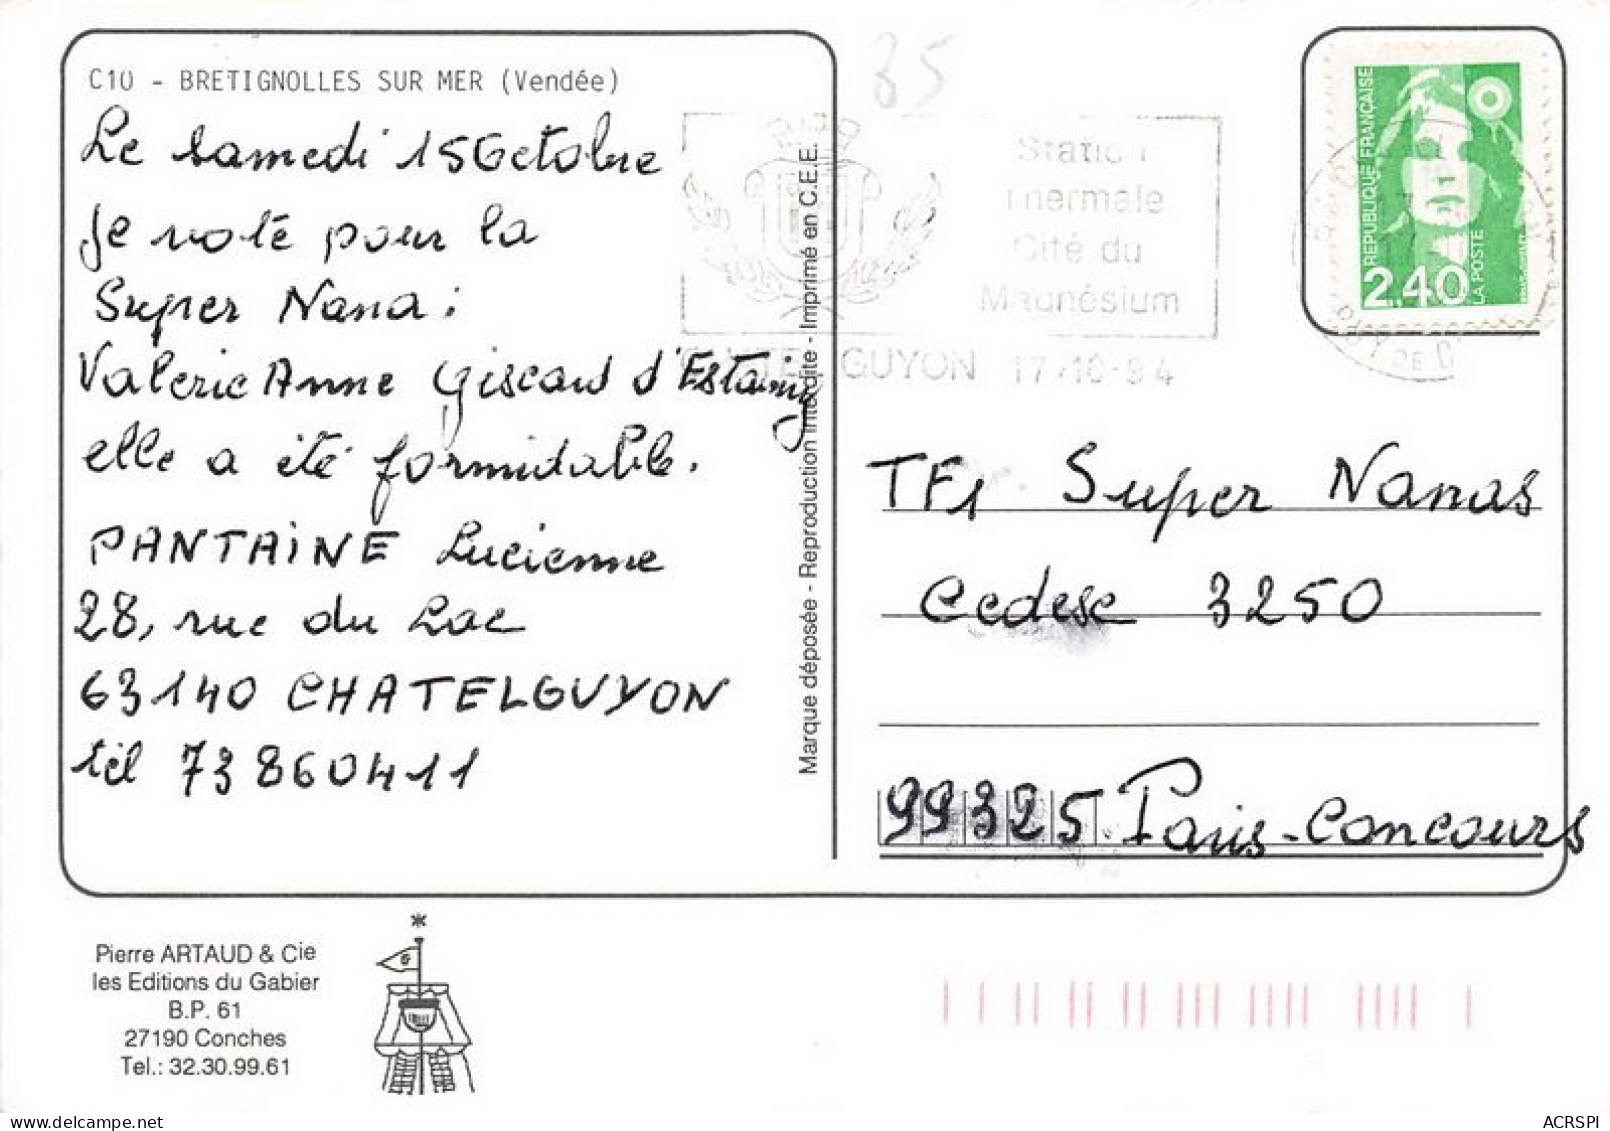 C10 - BRETIGNOLLES SUR MER (Vendée)
Le samedi 15 Octobre
je vote pour la
Super Nana :
Valerie Anne Giscard d'Estaing
elle a été formidable.
PANTAINE Lucienne
28, rue du Lac
63140 CHATELGUYON
tél 73860411
Marque déposée - Reproduction interdite - Imprimé en C.E.E.
35
Station
Thermale
Cité du
Magnésium
GUYON 17-10-94
REPUBLIQUE FRANÇAISE
2,40
LA POSTE
TF1 Super Nanas
Cedese 3250
99325 Paris-Concours
Pierre ARTAUD & Cie
les Editions du Gabier
B.P. 61
27190 Conches
Tel.: 32.30.99.61
ACRSPI